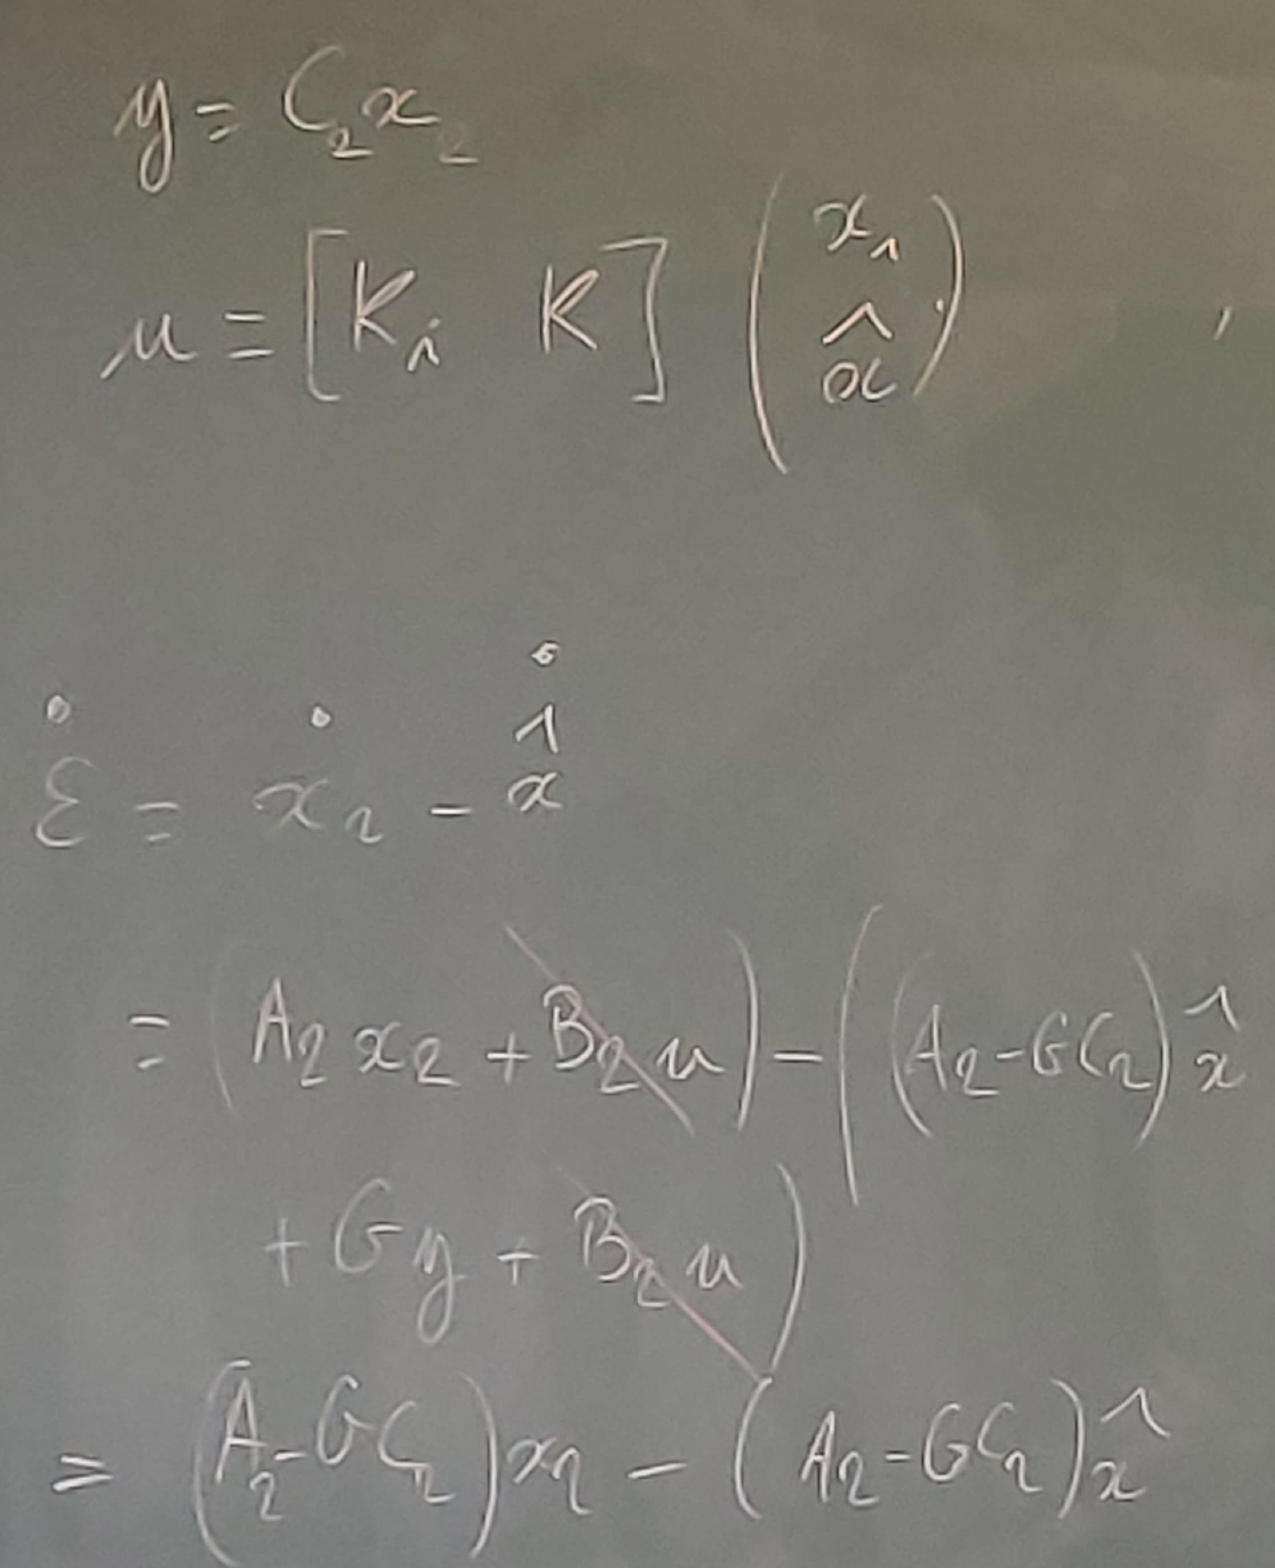 y = C₂x₂
u = [Kᵢ K] (x₁ x̂)
ε̇ = ẋ₂ - x̂̇
= (A₂x₂ + B₂u) - ((A₂-GC₂)x̂
+ Gy + B₂u)
= (A₂-GC₂)x₂ - (A₂-GC₂)x̂